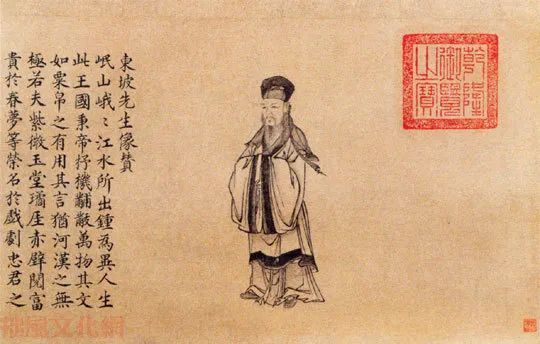 乾隆
御覽
之寶
東坡先生像贊
岷山峨〻江水所出鍾為異人生
此王國秉帝杼機黼黻萬物其文
如粟帛之有用其言猶河漢之無
極若夫紫微玉堂瓊厓赤壁閱富
貴於春夢等榮名於戲劇忠君之
風文化網